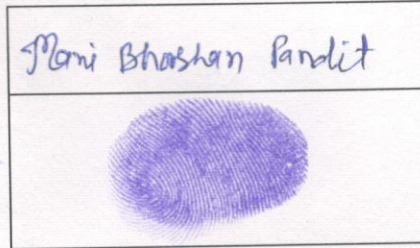 Mani Bhooshan Pandit